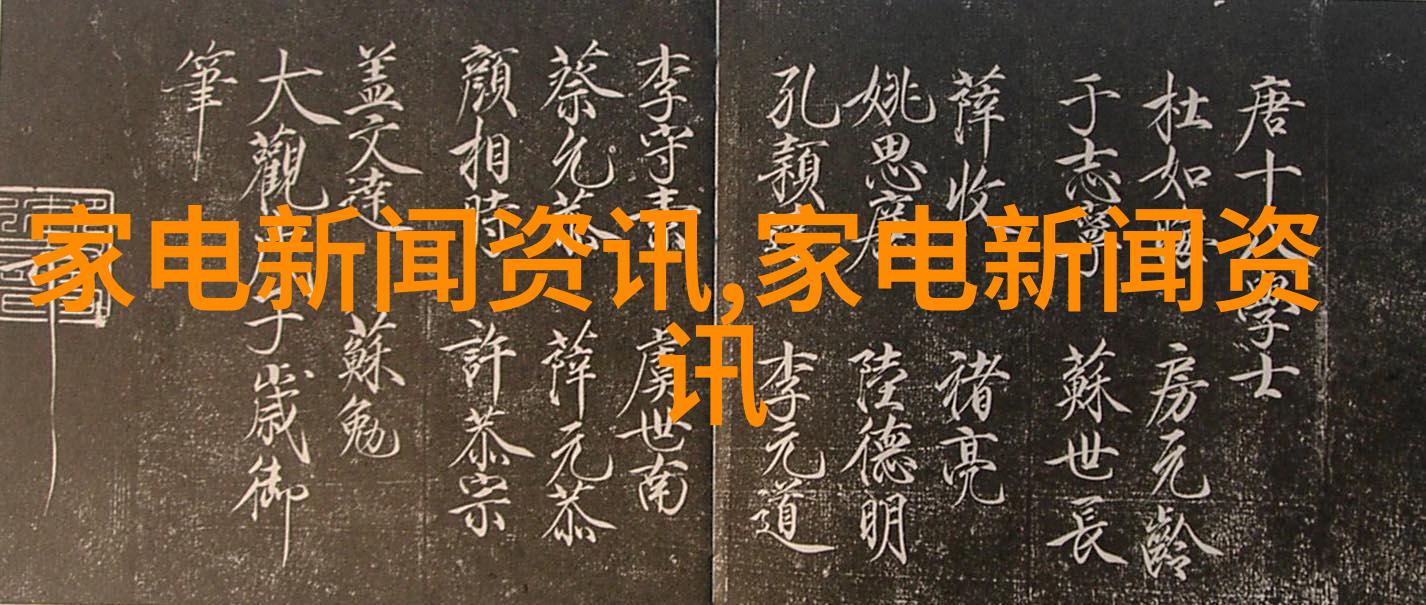 家电新闻资讯,家电新闻资
讯
唐十學士
杜如晦 房元齡
于志寧 蘇世長
薛收 褚亮
姚思廉 陸德明
孔穎 李元道
李守素 虞世南
蔡元恭 薛元恭
顏相時 許恭宗
盖文達 蘇勉
大觀子歲御
筆